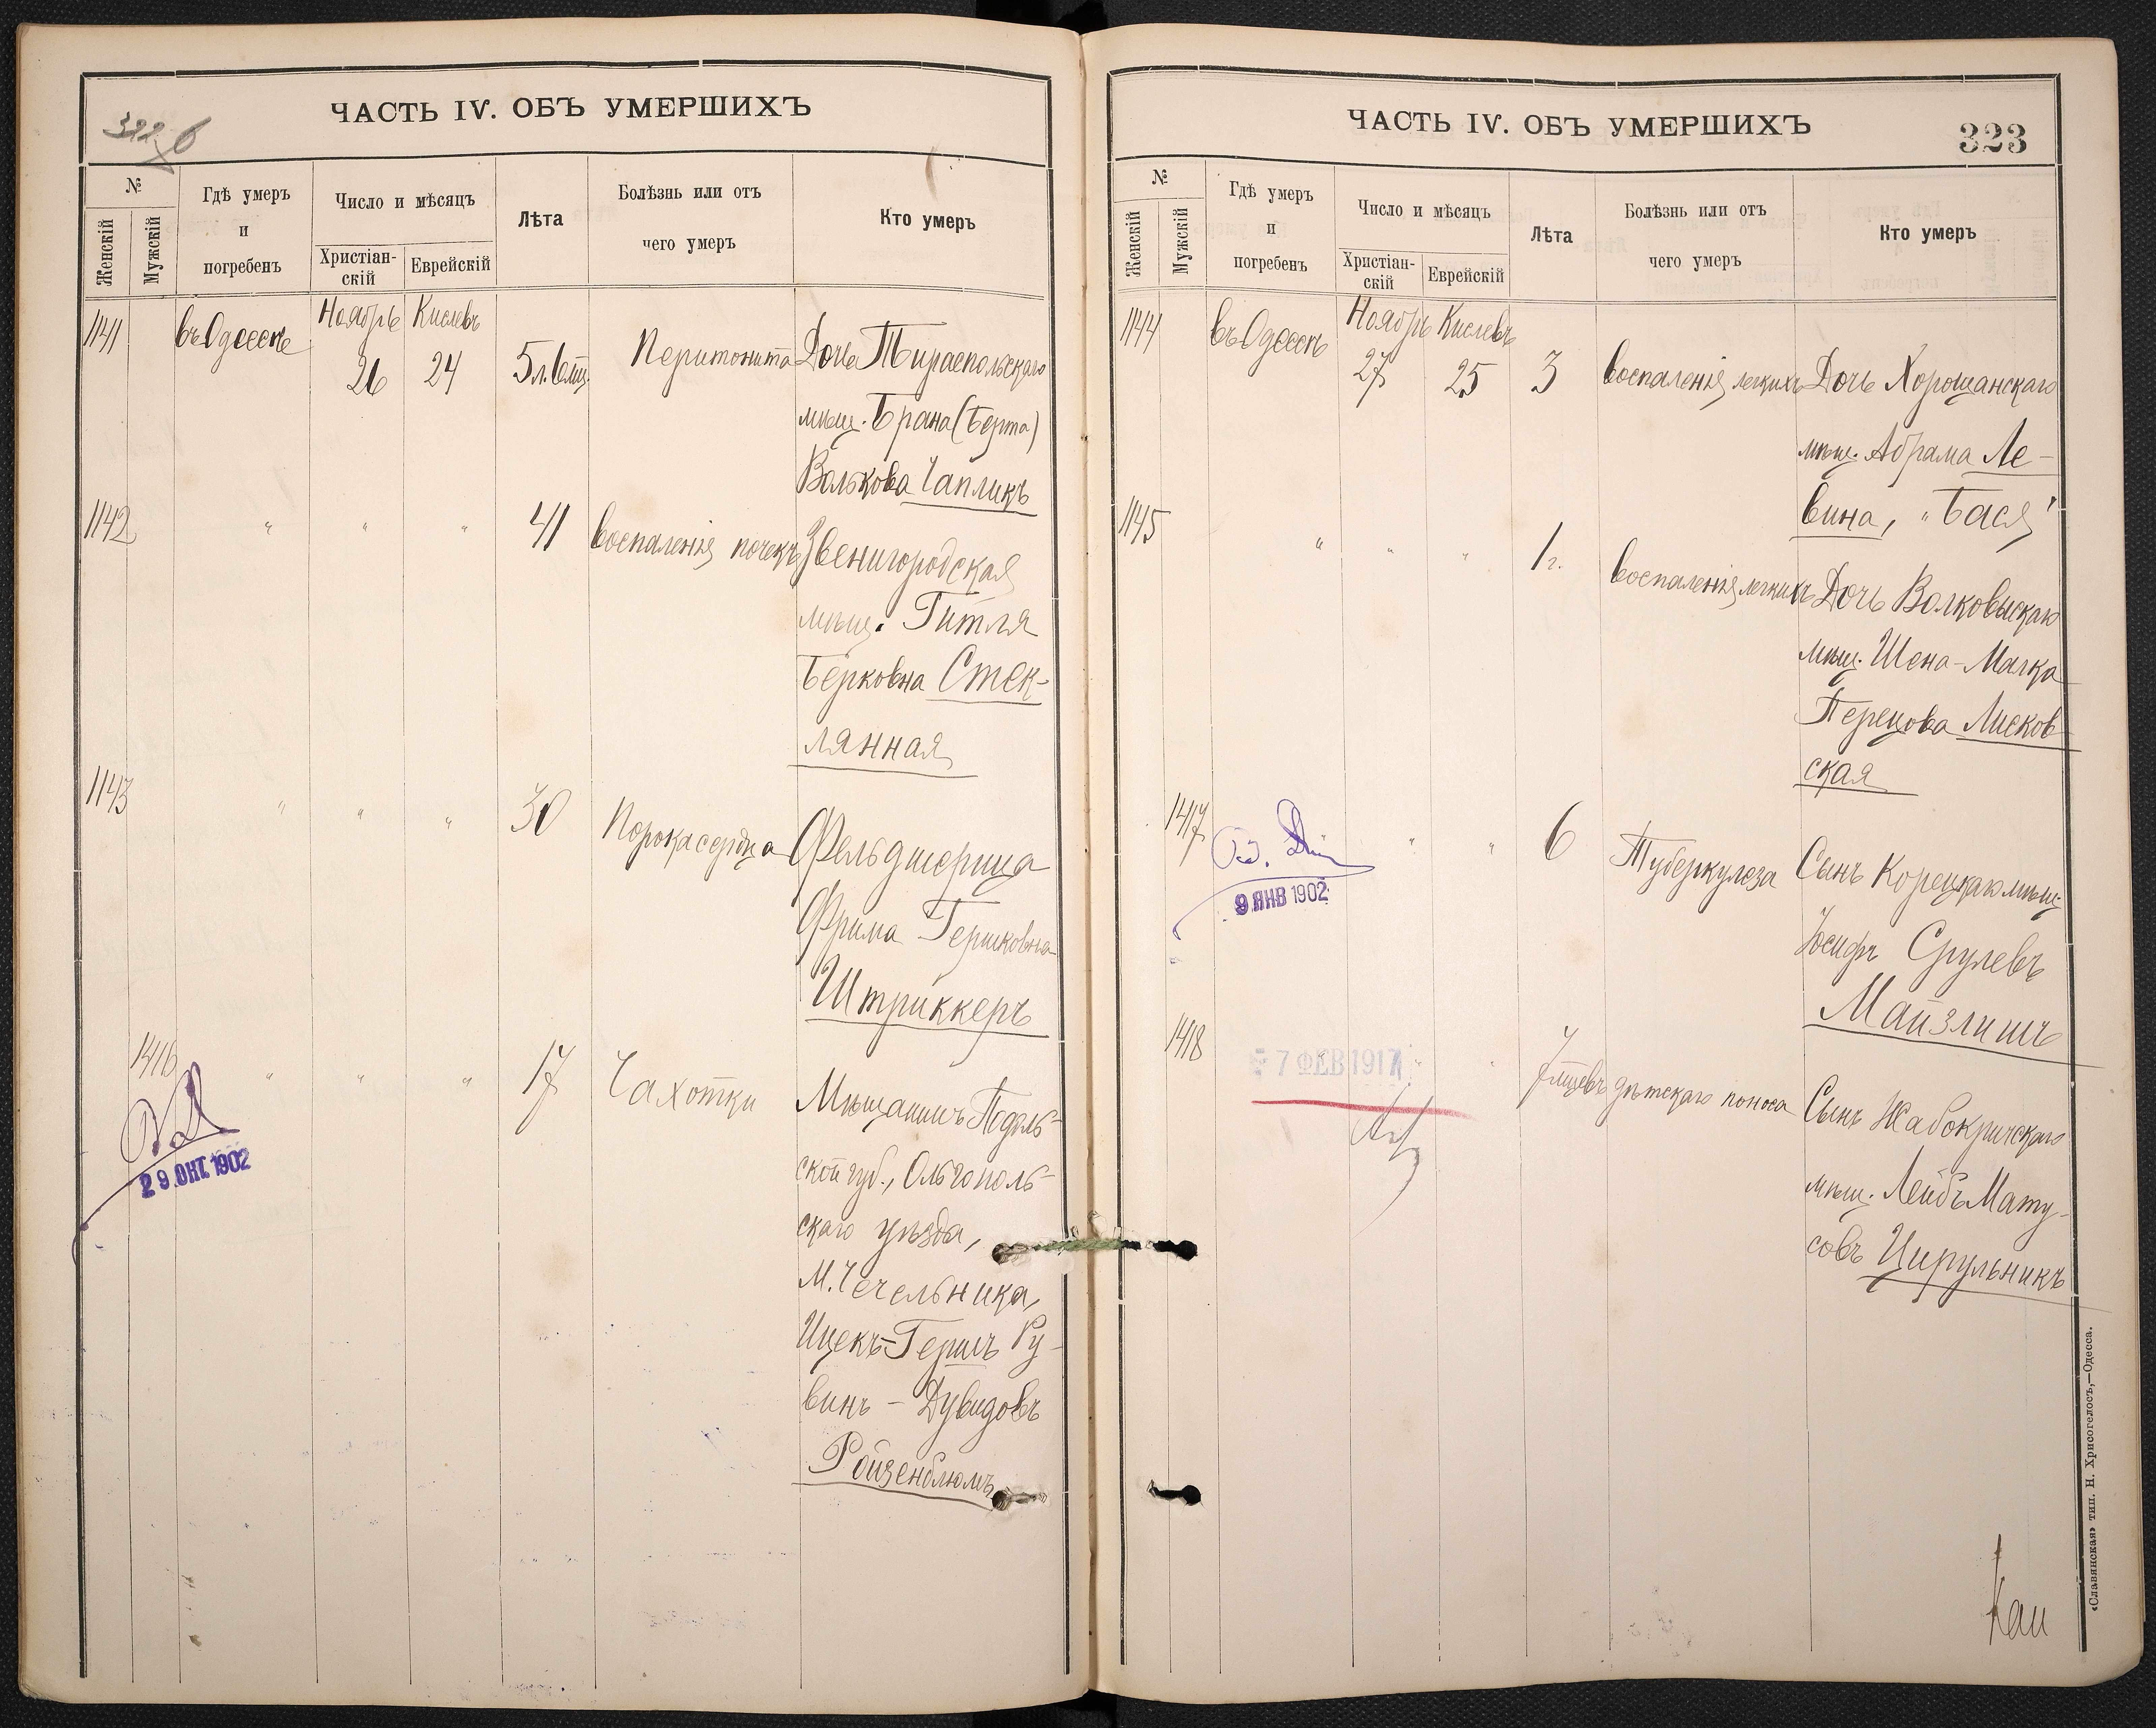 322 б
ЧАСТЬ IV. ОБЪ УМЕРШИХЪ
№
Женскій
Мужскій
Гдѣ умеръ
и
погребенъ
Число и мѣсяцъ
Христіан-
скій
Еврейскій
Лѣта
Болѣзнь или отъ
чего умеръ
Кто умеръ
1141
въ Одессѣ
Ноябрь
26
Кислевъ
24
5 л. 6 мц.
Перитонита
Дочь Тираспольскаго
мѣщ. Брана (Берта)
Волькова Чапликъ
1142
" " "
41
воспаленія почекъ
Звенигородская
мѣщ. Гитля
Берковна Стек-
лянная
1143
" " "
30
Порока сердца
Фельдшерица
Фрима Гершковна
Штриккеръ
1416
" " "
17
Чахотки
Мѣщанинъ Подоль-
ской губ., Ольгополь-
скаго уѣзда,
М. Чечельника,
Ицекъ-Гершъ Ру-
винъ - Дувидовъ
Ройзенблюмъ
29 ОКТ. 1902
ЧАСТЬ IV. ОБЪ УМЕРШИХЪ
323
№
Женскій
Мужскій
Гдѣ умеръ
и
погребенъ
Число и мѣсяцъ
Христіан-
скій
Еврейскій
Лѣта
Болѣзнь или отъ
чего умеръ
Кто умеръ
1144
въ Одессѣ
Ноябрь
27
Кислевъ
25
3
воспаленія легкихъ
Дочь Хорощанскаго
мѣщ. Абрама Ле-
вина, "Бася"
1145
" " "
1 г.
воспаленія легкихъ
Дочь Волковыскаго
мѣщ. Шена-Малка
Перецова Лисков-
ская
1417
" "
6
Туберкулеза
Сынъ Корецкаго мѣщ.
Іосифъ Срулевъ
Майзлишъ
9 ЯНВ 1902
1418
" "
7 мцевъ
дѣтскаго поноса
Сынъ Жабокричскаго
мѣщ. Лейбъ Мату-
совъ Цирульникъ
7 ФЕВ 1917
Кан
«Славянская» тип. Н. Хрисогелосъ,—Одесса.